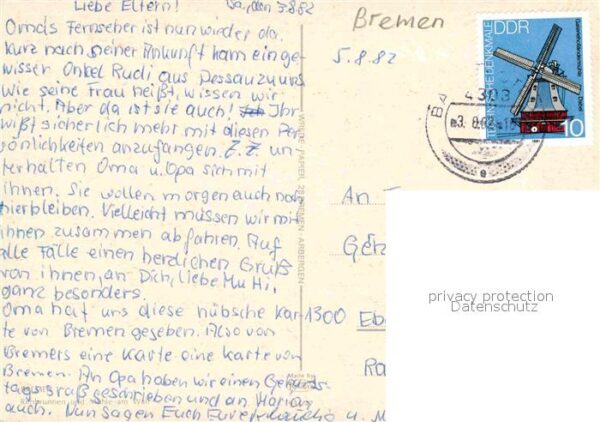 Liebe Eltern!
3.8.82
Bremen
Omas Fernseher ist nun wieder da.
Kurz nach seiner Ankunft kam ein ge-
wisser Onkel Rudi aus Dessau zu uns
Wie seine Frau heißt, wissen wir
nicht. Aber da ist sie auch! Ihr
wißt sicherlich mehr mit diesen Per
sönlichkeiten anzufangen. Z. Z. un-
terhalten Oma u. Opa sich mit
ihnen. Sie wollen morgen auch noch
hierbleiben. Vielleicht müssen wir mit
ihnen zusammen abfahren. Auf
alle Fälle einen herzlichen Gruß
von ihnen, an Dich, liebe Mu Hi,
ganz besonders.
Oma hat uns diese hübsche Kar-
te von Bremen gegeben. Also von
Bremers eine Karte eine Karte von
Bremen. An Opa haben wir einen Geburts-
tagsgruß geschrieben und an Marion
auch. Nun sagen Euch Eure u. M
5.8.82
DDR
TECHNISCHE DENKMALE
10
4303
-3. 8.82
e
WELKE PAPIER, 28 BREMEN - ARBERGEN
An
1300
Ebe
privacy protection
Datenschutz